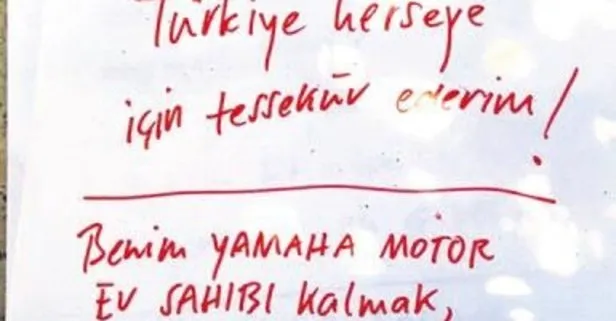 Türkiye herseye
için tessekür ederim!
Benim YAMAHA MOTOR
EV SAHIBI kalmak,